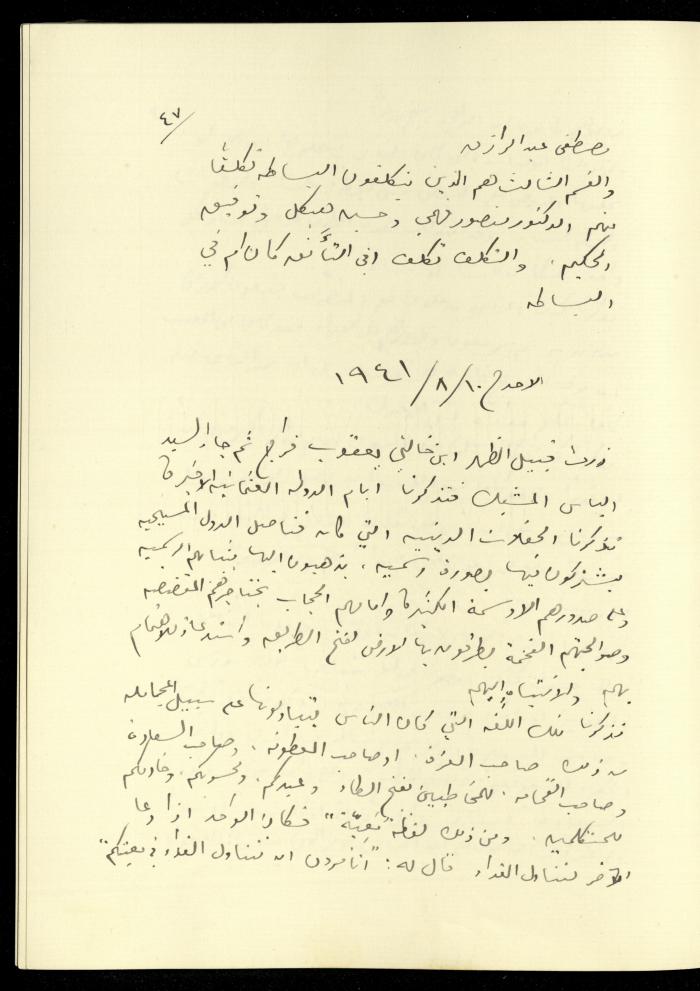 ٤٧/
مصطفى عبد الرازق
والقسم الثالث هم الذين يتكلفون البساطه تكلفاً
منهم الدكتور منصور فهمي وحسين هيكل وتوفيق
الحكيم. والتكلف تكلف افي التأنق كان ام في
البساطه
الاحد في ١٠/ ٨/ ١٩٤١
زرت قبيل الظهر ابن خالتي يعقوب فراج ثم جاء السيد
الياس المشبك فتذكرنا ايام الدولة العثمانية الاخيرة
تذكرنا الحفلات الدينيه التي كان قناصل الدول المسيحيه
يشتركون فيها بصورة رسميه، يذهبون اليها بثيابهم الرسميه
وعلى صدورهم الاوسمة الكثيرة وامامهم الحجاب بخناجرهم المفضضه
وصوالجتهم الفخمة يطرقون بها الارض لفتح الطريق واستدعاء للاهتمام
بهم والانتباه اليهم
تذكرنا تلك اللغه التي كان الناس يتبادلونها على سبيل المجامله
من ذلك صاحب العزة، او صاحب العطوفه، وصاحب السعادة
وصاحب الفخامه، للمخاطبين بفتح الطاء وعبدكم ومحسوبكم وخادمكم
للمتكلمين. ومن ذلك لفظة "مَعِيّة" فكان الواحد اذا دعا
الآخر لتناول الغداء قال له: "أتأمرون ان نتناول الغداء في معيتكم"